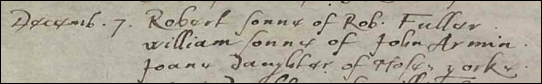 Decemb. 7. Robert sonne of Rob. Fuller.
William sonne of John Armin.
Joane daughter of Moses yorke.